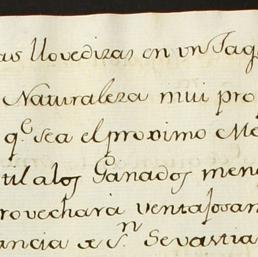 as llovedizas en vn Taq
Naturaleza mui pro
q.e sea el proximo Me
til a los Ganados men
provechara ventajosam
ancia de S.n Sevastia